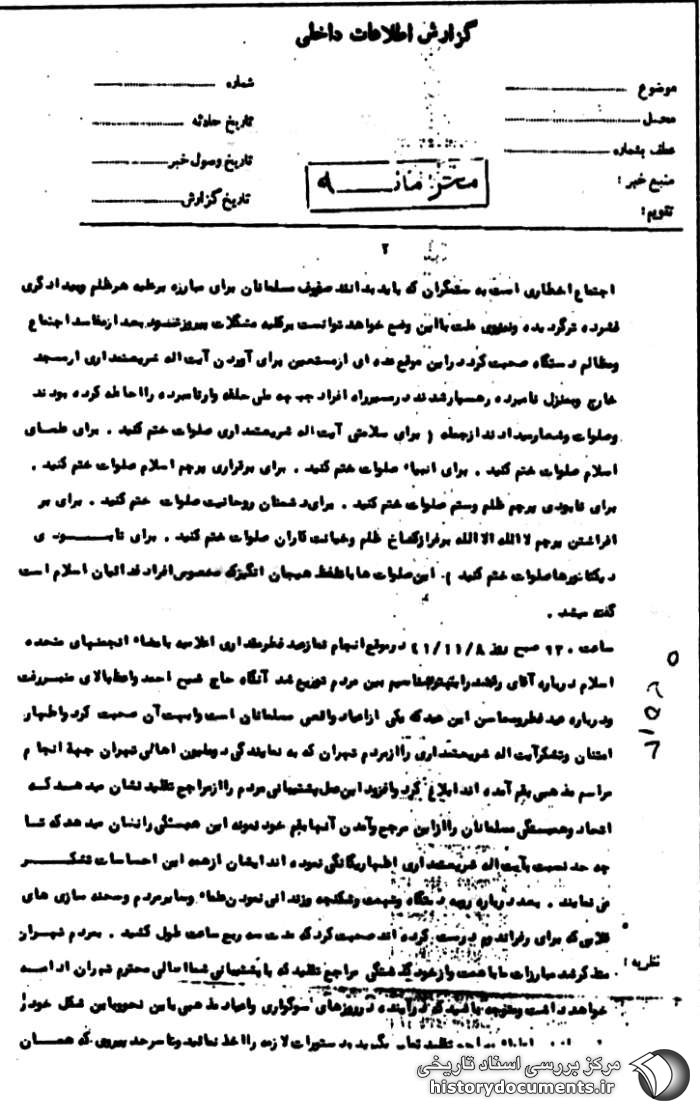 گزارش اطلاعات داخلی
موضوع
شماره
محل
تاریخ حادثه
عطف بشماره
تاریخ وصول خبر
منبع خبر :
محرمانه
تاریخ گزارش
تقویم :
۲
اجتماع اخطاری است به ستمگران که باید بدانند صفوف مسلمانان برای مبارزه برعلیه هرظلم وبیدادگری
فشرده ترگردیده ونیروی ملت بااین وضع خواهد توانست برکلیه مشکلات پیروزشود بعد ازمفاسد اجتماع
ومظالم دستگاه صحبت کرد دراین موقع عده ای ازمستمعین برای آوردن آیت اله شریعتمداری ازمسجد
خارج وبمنزل نامبرده رهسپارشدند درمسیرراه افراد جبهه ملی حلقه وارنامبرده رااحاطه کرده بودند
وصلوات وشعارمیدادند ازجمله ( برای سلامتی آیت اله شریعتمداری صلوات ختم کنید . برای علمای
اسلام صلوات ختم کنید . برای انبیاء صلوات ختم کنید . برای برقراری پرچم اسلام صلوات ختم کنید .
برای نابودی پرچم ظلم وستم صلوات ختم کنید . برای دشمنان روحانیت صلوات ختم کنید . برای بر
افراشتن پرچم لااله الا الله برفرازکاخ ظلم وخیانت کاران صلوات ختم کنید . برای نابودی
دیکتاتورها صلوات ختم کنید ). این صلوات ها باتلفظ هیجان انگیزکه مخصوص افراد فدائیان اسلام است
گفته میشد .
ساعت ۹۳۰ صبح روز ۴۱/۱۱/۸ درموقع انجام نمازعید فطرمقداری اعلامیه بامضاء انجمنهای متحده
اسلام درباره آقای بین مردم توزیع شد آنگاه حاج شیخ احمد واعظ بالای منبررفت
ودرباره عید فطرومحاسن این عید که یکی ازاعیاد واقعی مسلمانان است واهمیت آن صحبت کرد واظهار
امتنان وتشکرآیت اله شریعتمداری راازمردم تهران که به نمایندگی دومیلیون اهالی تهران جهة انجام
مراسم مذهبی بقم آمده اند ابلاغ کرد وافزود این عمل پشتیبانی مردم راازمراجع تقلید نشان میدهد که
اتحاد وهمبستگی مسلمانان راازاین مرجع وآمدن آنها بقم خود نمونه این همبستگی رانشان میدهد که تا
چه حد نسبت بآیت اله شریعتمداری اظهاریگانگی نموده اند ایشان ازهمه این احساسات تشکر
می نمایند . بعد درباره رویه دستگاه وشکنجه وزندانی نمودن علماء وسایرمردم وصحنه سازی های
قلابی که برای رفراندم درست کرده اند صحبت کرد که مدت سه ربع ساعت طول کشید . بمردم تهران
متذکرشد مبارزات ما باهمت وازخود گذشتگی مراجع تقلید که با پشتیبانی شما اهالی محترم تهران ادامه
نظریه :
خواهد داشت ومتوجه باشید که درآینده درروزهای سوگواری واعیاد مذهبی باین نحو وباین شکل خود را
تقلید تماس بگیرید دستورات لازمه رااخذ نمائید وتا سرحد پیروزی که همان
مرکز بررسی اسناد تاریخی
historydocuments.ir